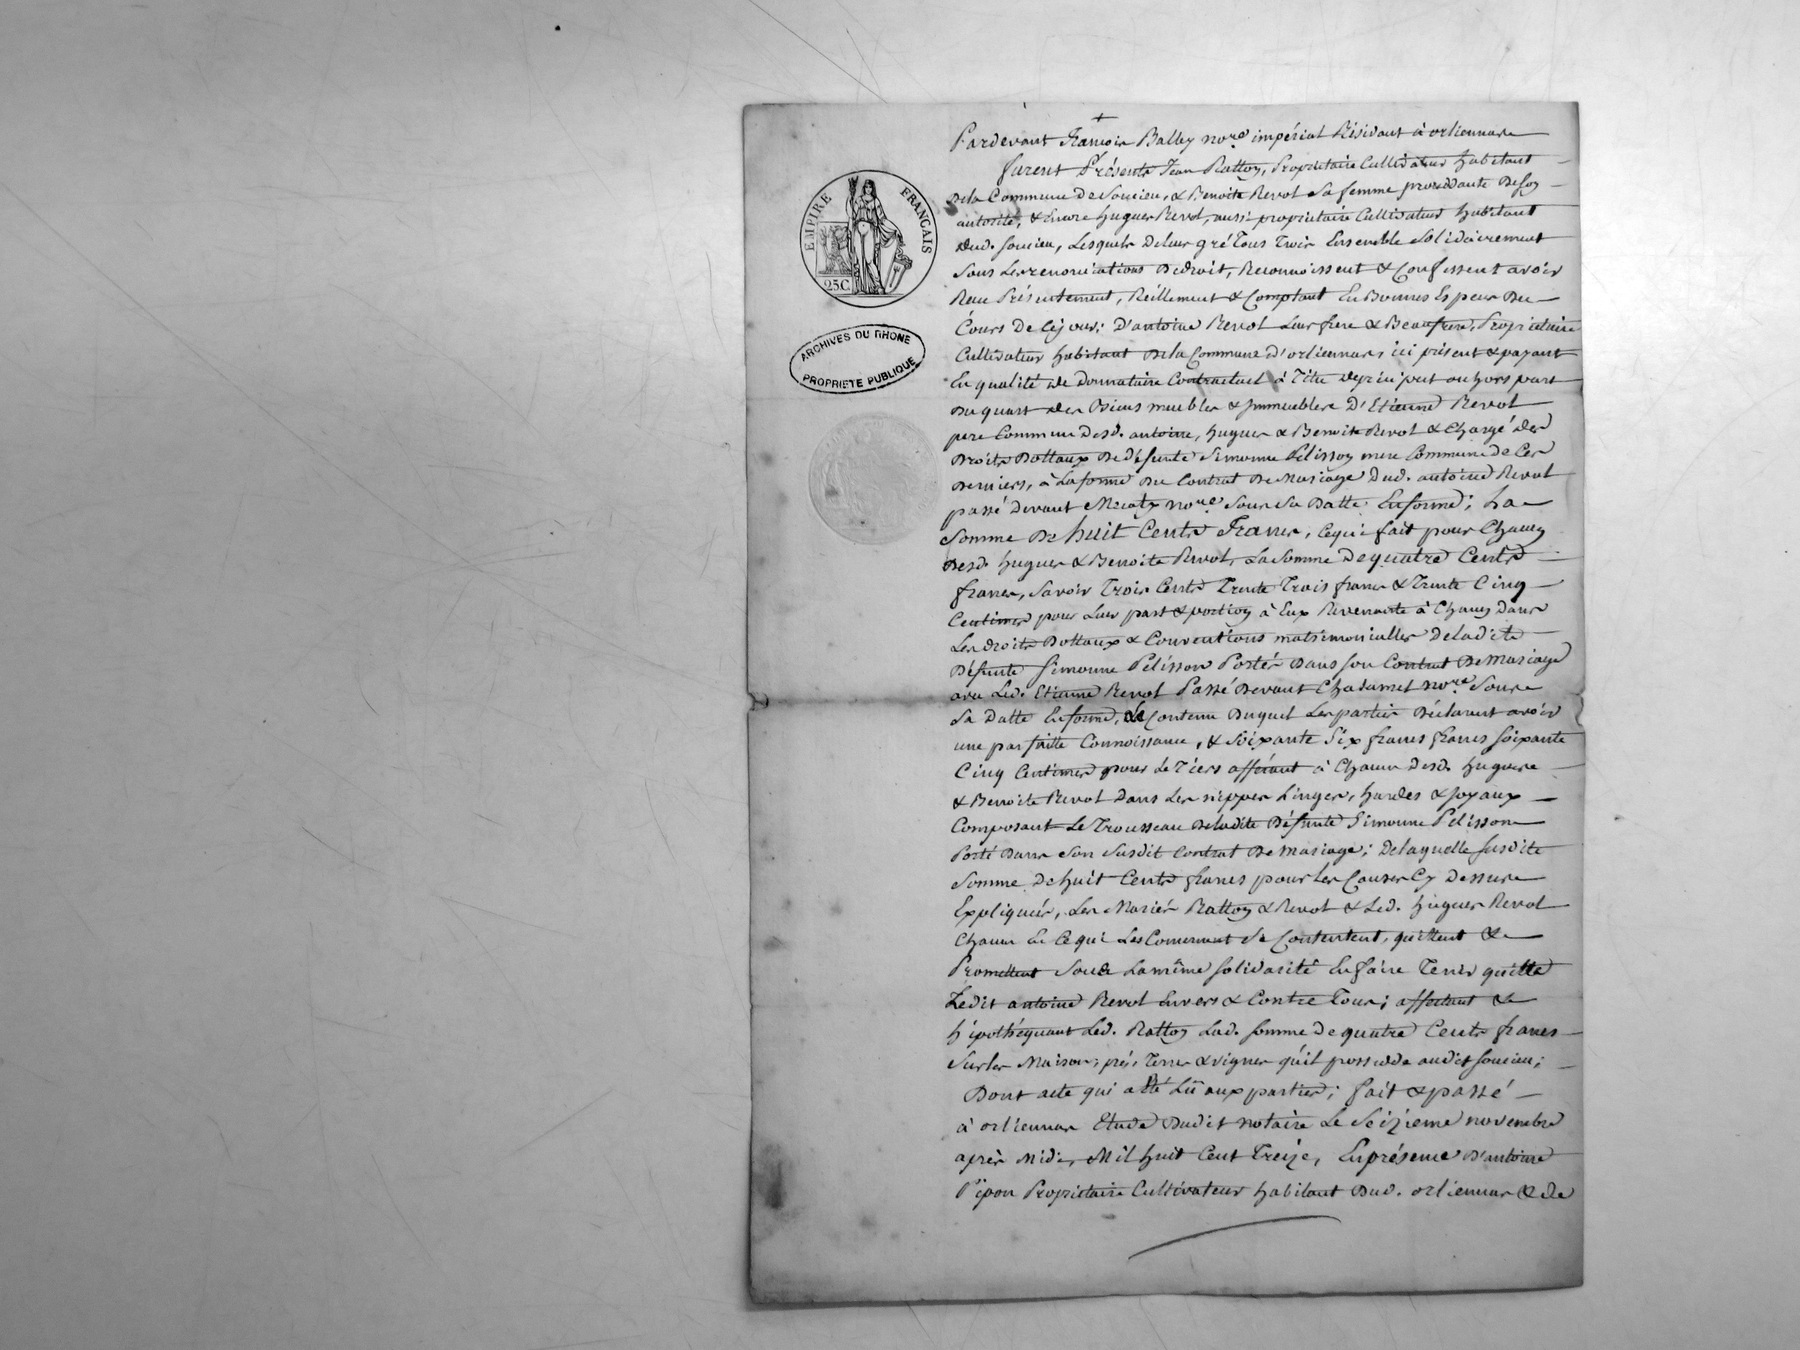 EMPIRE FRANÇAIS
25C
ARCHIVES DU RHONE
PROPRIETE PUBLIQUE
Pardevant François Balley no.re impérial Résidant à orliennas
furent Présents Jean Ratton, Propriétaire Cultivateur habitant
dela Commune de Soucieu, & Benoite Revol sa femme procédante de son
autorité, & Encore hugues Revol, aussi propriétaire Cultivateur habitant
dud. soucieu, Lesquels de leur gré Tous Trois Ensemble solidairement
sous Les renonciations de droit, Reconnoissent & Confessent avoir
Reçu Présentement, Réellement & Comptant En Bonnes Espèces Du
Cours De Ce jour; D'antoine Revol Leur frere & Beaufrere, Propriétaire
Cultivateur habitant dela Commune d'orliennas ici présent & payant
En qualité de Donnataire Contractuel à Titre de préciput ou hors part
Du quart des Biens meubles & immeubles D'Etienne Revol
pere Commun Desd. antoine, hugues & Benoite Revol & Chargé des
Droits Dottaux De défunte Simonne Pelisson mere Commune de Ces
Derniers, à La forme Du Contrat De Mariage Dud. antoine Revol
passé Devant no.re Sous sa Datte En forme; La
Somme De huit Cents Francs, Cequi fait pour Chacun
Desd. hugues & Benoite Revol, La Somme De quatre Cents
francs, Savoir Trois Cents Trente Trois francs & Trente Cinq
Centimes pour Leur part & portion à Eux Revenante à Chacun Dans
Les droits Dottaux & Conventions matrimonialles De ladite
Défunte Simonne Pelisson Portés Dans son Contrat De Mariage
avec Led. Etienne Revol Passé Devant Chadamet no.re Sous
Sa Datte En forme, du Contenu Duquel Les parties Déclarent avoir
une parfaitte Connoissance, & Soixante Six francs francs soixante
Cinq Centimes pour Le Tiers afférant à Chacun Desd. hugues
& Benoite Revol Dans Les nippes Linges, hardes & joyaux
Composant Le Trousseau De ladite Défunte Simonne Pelisson
Porté Dans son susdit Contrat De Mariage; De laquelle susdite
Somme De huit Cents francs pour Les Causes Cy Dessus
Expliquées, Les Mariés Ratton & Revol & Led. hugues Revol
Chacun En Ce qui Les Concernent se Contentent, quittent &
Promettent Sous La même solidarité En faire Tenir quitte
Ledit antoine Revol Envers & Contre Tous; affectant &
hipothéquant Led. Ratton Lad. somme De quatre Cents francs
Sur les Maisons, prés, Terres & vignes qu'il possede audit soucieu;
Dont acte qui a été Lu aux parties; fait & passé
à orliennas Etude Dudit notaire Le Seizieme novembre
après Midi, Mil huit Cent Treize, En présence D'antoine
Pipon Propriétaire Cultivateur habitant Dud. orliennas & de